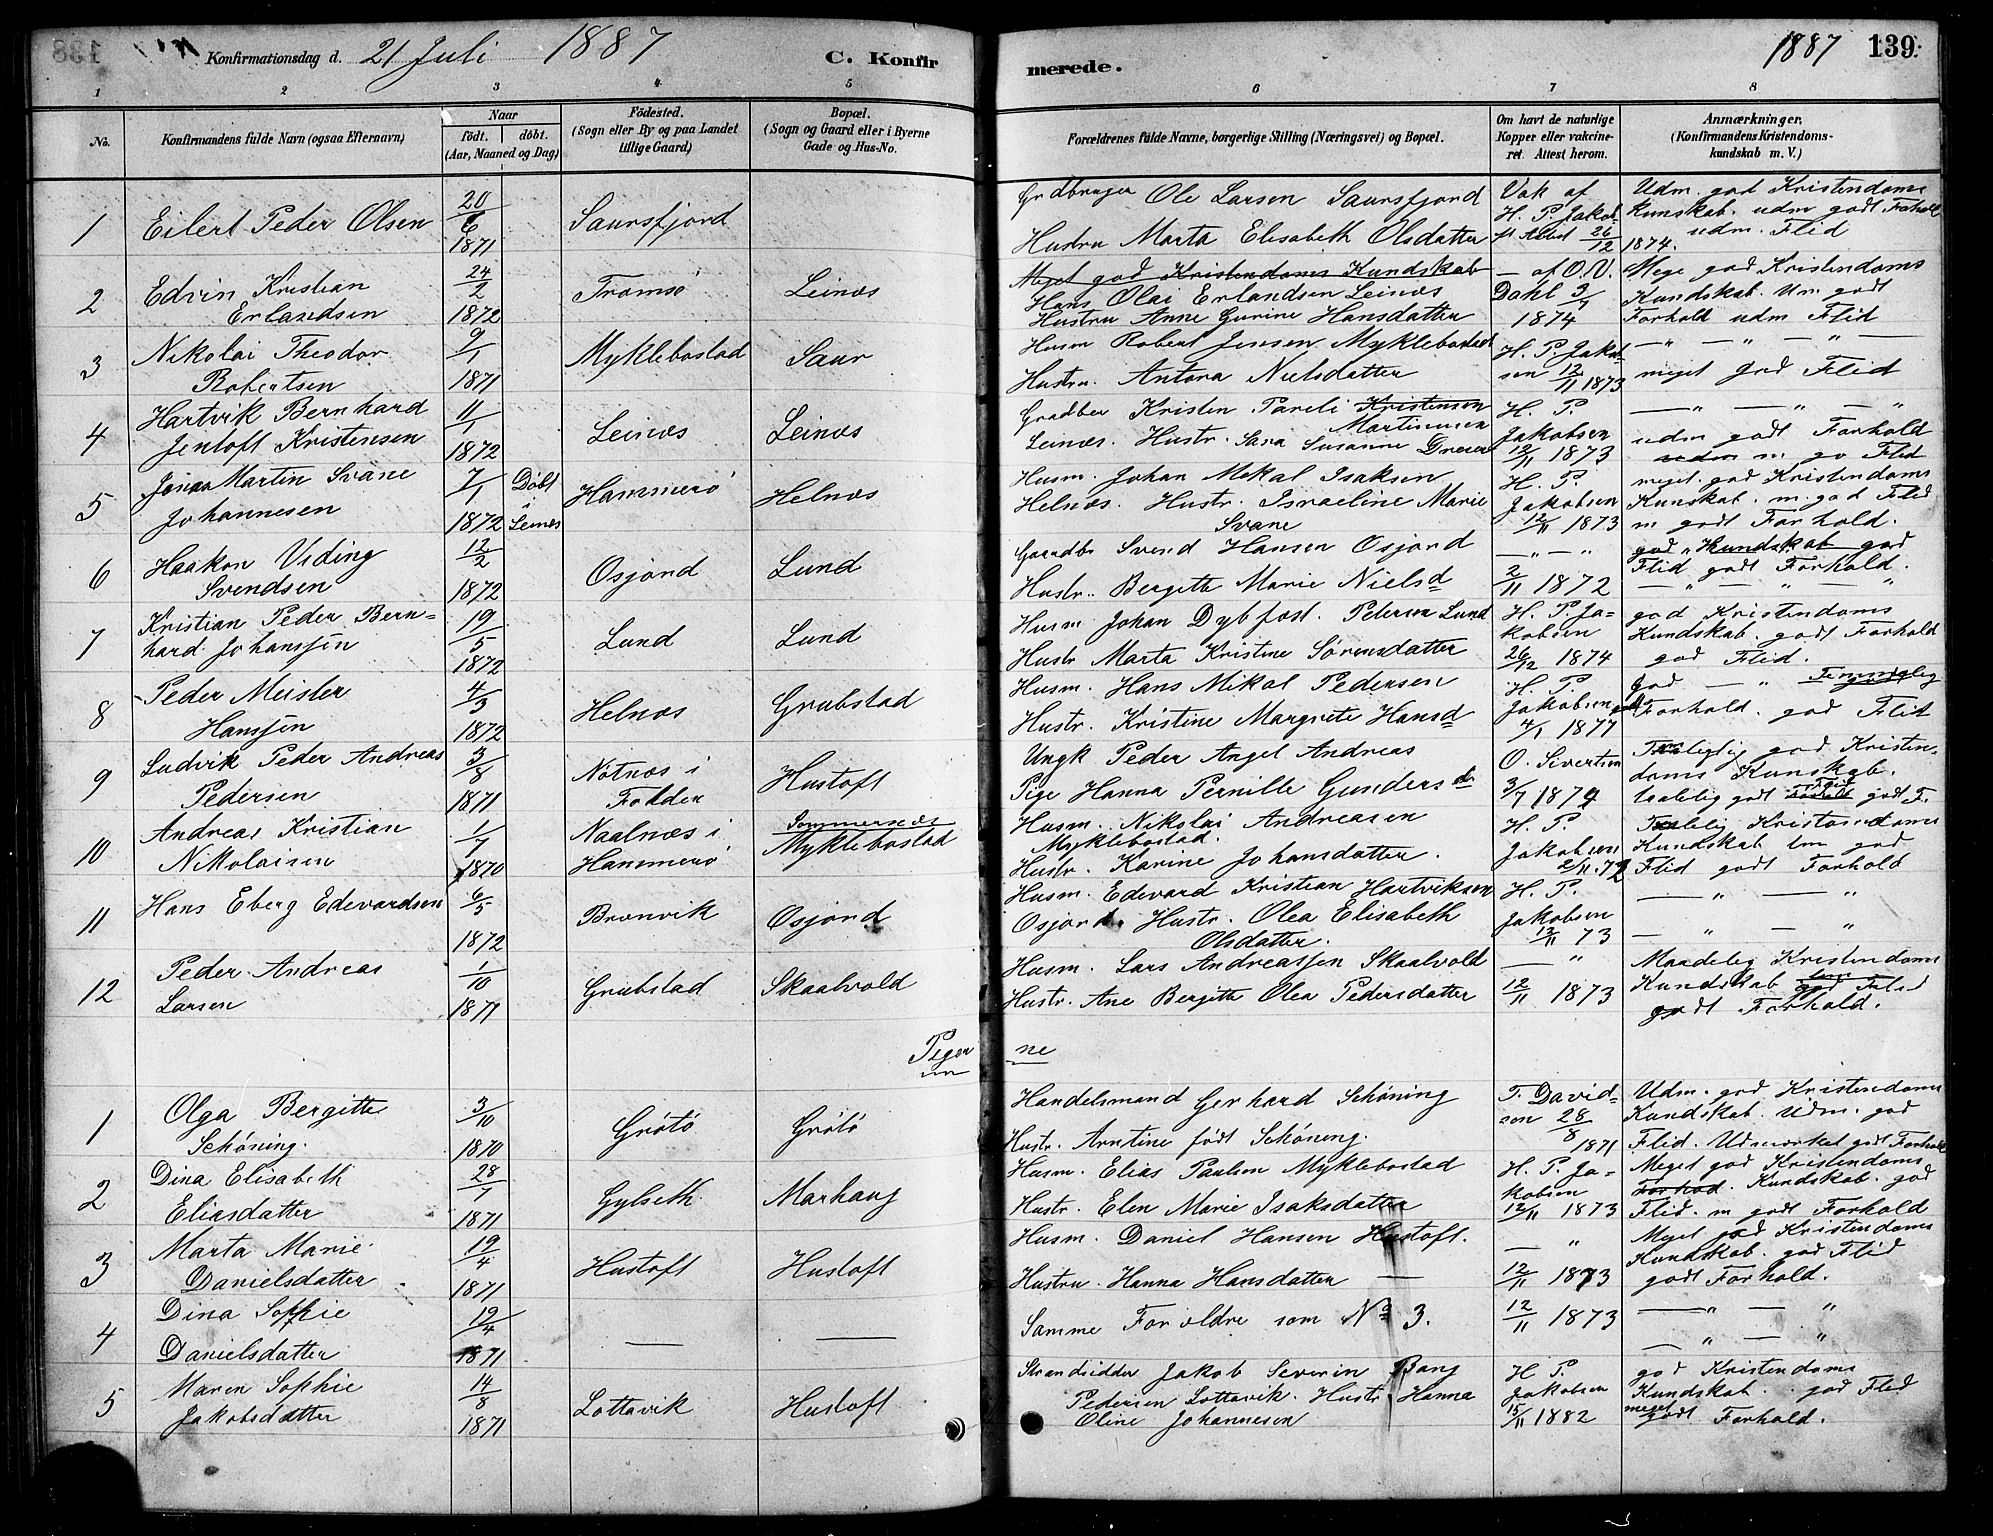 Konfirmationsdag d. 21 Juli 1887 C. Konfir
merede. 1887 139.
1 2 3 4 5 6 7 8
No.
Konfirmandens fulde Navn (ogsaa Efternavn)
Naar
födt. döbt.
(Aar, Maaned og Dag)
Födested.
(Sogn eller By og paa Landet
tillige Gaard)
Bopæl.
(Sogn og Gaard eller i Byerne
Gade og Hus-No.
Forældrenes fulde Navne, borgerlige Stilling (Næringsvei) og Bopæl.
Om havt de naturlige
Kopper eller vakcine-
ret. Attest herom.
Anmærkninger.
(Konfirmandens Kristendoms-
kundskab m. V.)
1 Eilert Peder Olsen 20/6 1871 Saursfjord
Grdbruger Ole Larsen Saursfjord
Hustru Marta Elisabeth Olsdatter
Vak af
H. P. Jakob
Attest 26/12 1874.
Udm. god Kristendoms
kunskab. udm godt Forhold
udm. Flid
2 Edvin Kristian
Erlandsen
24/2 1872 Tromsö Leines
Meget god Kristendoms Kundskab
Hans Olai Erlandsen Leines
Hustru Anne Gurine Hansdatter
— af O. N.
Dahl 3/7
1874
Mege god Kristendoms
Kundskab. Um godt
Forhold udm Flid
3 Nikolai Theodor
Robertsen
9/1 1871 Myklebostad Saur
Husm Robert Jensen Myklebostad
Hustru. Antora Nielsdatter
H. P. Jakob-
sen 12/11 1873
— " — " — " —
meget god Flid
4 Hartvik Bernhard
Jentoft Kristensen
11/1 1872 Leines Leines
Kristen Pareli Kristensen
Martinussen
Leines. Hustr. Sara Susanne
H. P.
Jakobsen
12/11 1873
— " — " — "
udm godt Forhold
m go Flid
5 Jonas Martin Svane
Johannesen
7/1 1872 Döbt
i
Leines
Hammerö Helnes
Husm. Johan Mekal Isaksen
Helnes. Hustr. Israeline Marie
Svane
H. P.
Jakobsen
12/11 1873
meget. god Kristendoms
Kunskab. m. god Flid
m godt Forhold.
6 Haakon Viding
Svendsen
12/2 1872 Osjord Lund
Gaardb. Svend Hansen Osjord
Hustr. Bergitte Marie Nielsd
— " — "
2/11 1872
god Kundskab god
Flid godt Forhold.
— " — " — "
7 Kristian Peder Bern-
hard Johanssen
19/5 1872 Lund Lund
Husm Johan Dybfost. Petersen Lund
Hustr Marta Kristine Sörensdatter
H. P. Ja-
kobsen
26/12 1874
god Kristendoms
Kundskab. godt Forhold
god Flid.
8 Peder Meisler
Hanssen
4/3 1872 Helnes Grubstad
Husm. Hans Mikal Pedersen
Hustr. Kristine Margrete Hansd
H. P.
Jakobsen
4/1 1877
god — "
Forhold. god Flid
9 Ludvik Peder Andreas
Pedersen
3/8 1871 Nötnes i
Folden
Hustoft
Ungk Peder Angel Andreas
Pige Hanna Pernille Gundersd
O. Sivertsen
3/7 1874
god Kristen-
doms Kunskab.
taalelig godt
10 Andreas Kristian
Nikolaisen
1/7 1870 Naalnes i
Hammerö
Sommerset
Myklebostad
Husm. Nikolai Andreasen
Myklebostad.
Hustr. Karine Johansdatter.
H. P.
Jakobsen
2/11.72
Kristendoms
Kundskab god
Flid godt Forhold
11 Hans Eberg Edevardsen 6/5 1872 Brenvik Osjord
Husm. Edevard Kristian Hartviksen
Osjord. Hustr. Olea Elisabeth
Olsdatter.
H. P.
Jakobsen
12/11 73
— " — "
— " — "
12 Peder Andreas
Larsen
1/10 1871 Grubstad Skaalvold
Husm. Lars Andreassen Skaalvold
Hustr. Ane Bergitte Olea Pedersdatter
— "
12/11 1873
Maadelig Kristendoms
Kundskab Flid
godt Forhold.
Piger
ne
1 Olga Bergitte
Schöning.
3/10 1870 Grötö Grötö
Handelsmand Gerhard Schöning
Hustr. Arntine födt Schöning.
T. David-
sen 28/8
1871
Udm. god Kristendoms
Kundskab. Udm. god
Flid. Udmerket godt Forhold
2 Dina Elisabeth
Eliasdatter
28/7 1871 Gylseth Marhaug
Husm. Elias Paulsen Myklebostad
Hustr. Elen Marie Isaksdatter
H. P. Ja-
kobsen
12/11 1873
Meget god Kristendoms
Forhod. Kundskab. god
Flid. m godt Forhold
3 Marta Marie
Danielsdatter
19/4 1871 Hustoft Hustoft
Husm. Daniel Hansen Hustoft.
Hustru. Hanna Hansdatter —
— "
12/11 1873
Meget god Kristendoms
Kundskab. god Flid
godt Forhold.
4 Dina Sophie
Danielsdatter
19/4 1871 — —
Samme Forældre som No 3.
12/11 1873
— " — "
— " — "
5 Maren Sophie
Jakobsdatter
14/8 1871 Lottavik Hustoft
Strandsidder Jakob Severin Bang
Pedersen Lottavik. Hustr. Hanna
Oline Johannesen
H P.
Jakobsen
15/11 1882
god Kristendoms
Kundskab. god Flid
meget
godt Forhold.